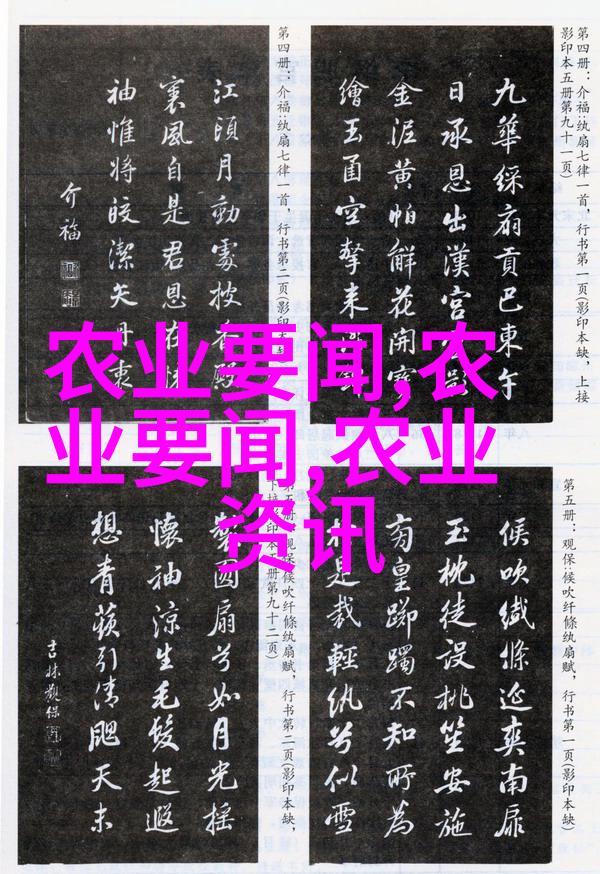 第四册：介福:纨扇七律一首，行书第一页(影印本缺，上接
影印本五册第九十一页)
九華綵扇貢巴東午
日承恩出漢宮
金泥黄帕解花開寶
繪玉函空擎来
第四册：介福:纨扇七律一首，行书第二页(影印本
江頭月動處披香殿
裏風自是君恩在
袖惟将皎潔矢丹衷
介福
农业要闻,农
业要闻,农业
资讯
第五册：观保:候吹纤條纨扇赋，行书第一页(影印本缺)
候吹纖絛延爽南扉
玉枕徒设桃笙安施
皇躑躅不知所為
是裁輕纨兮似雪
第五册：观保:候吹纤條纨扇赋，行书第二页(影印本缺，
下接影印本五册第九十二页)
製圓扇兮如月光摇
懷袖涼生毛髮起遐
想青蘋引清颸天末
吉林觀保